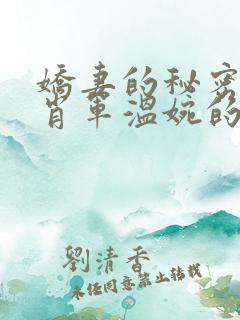 嬌妻的秘密
肖軍溫婉的
劉清香
未任同意禁止转载